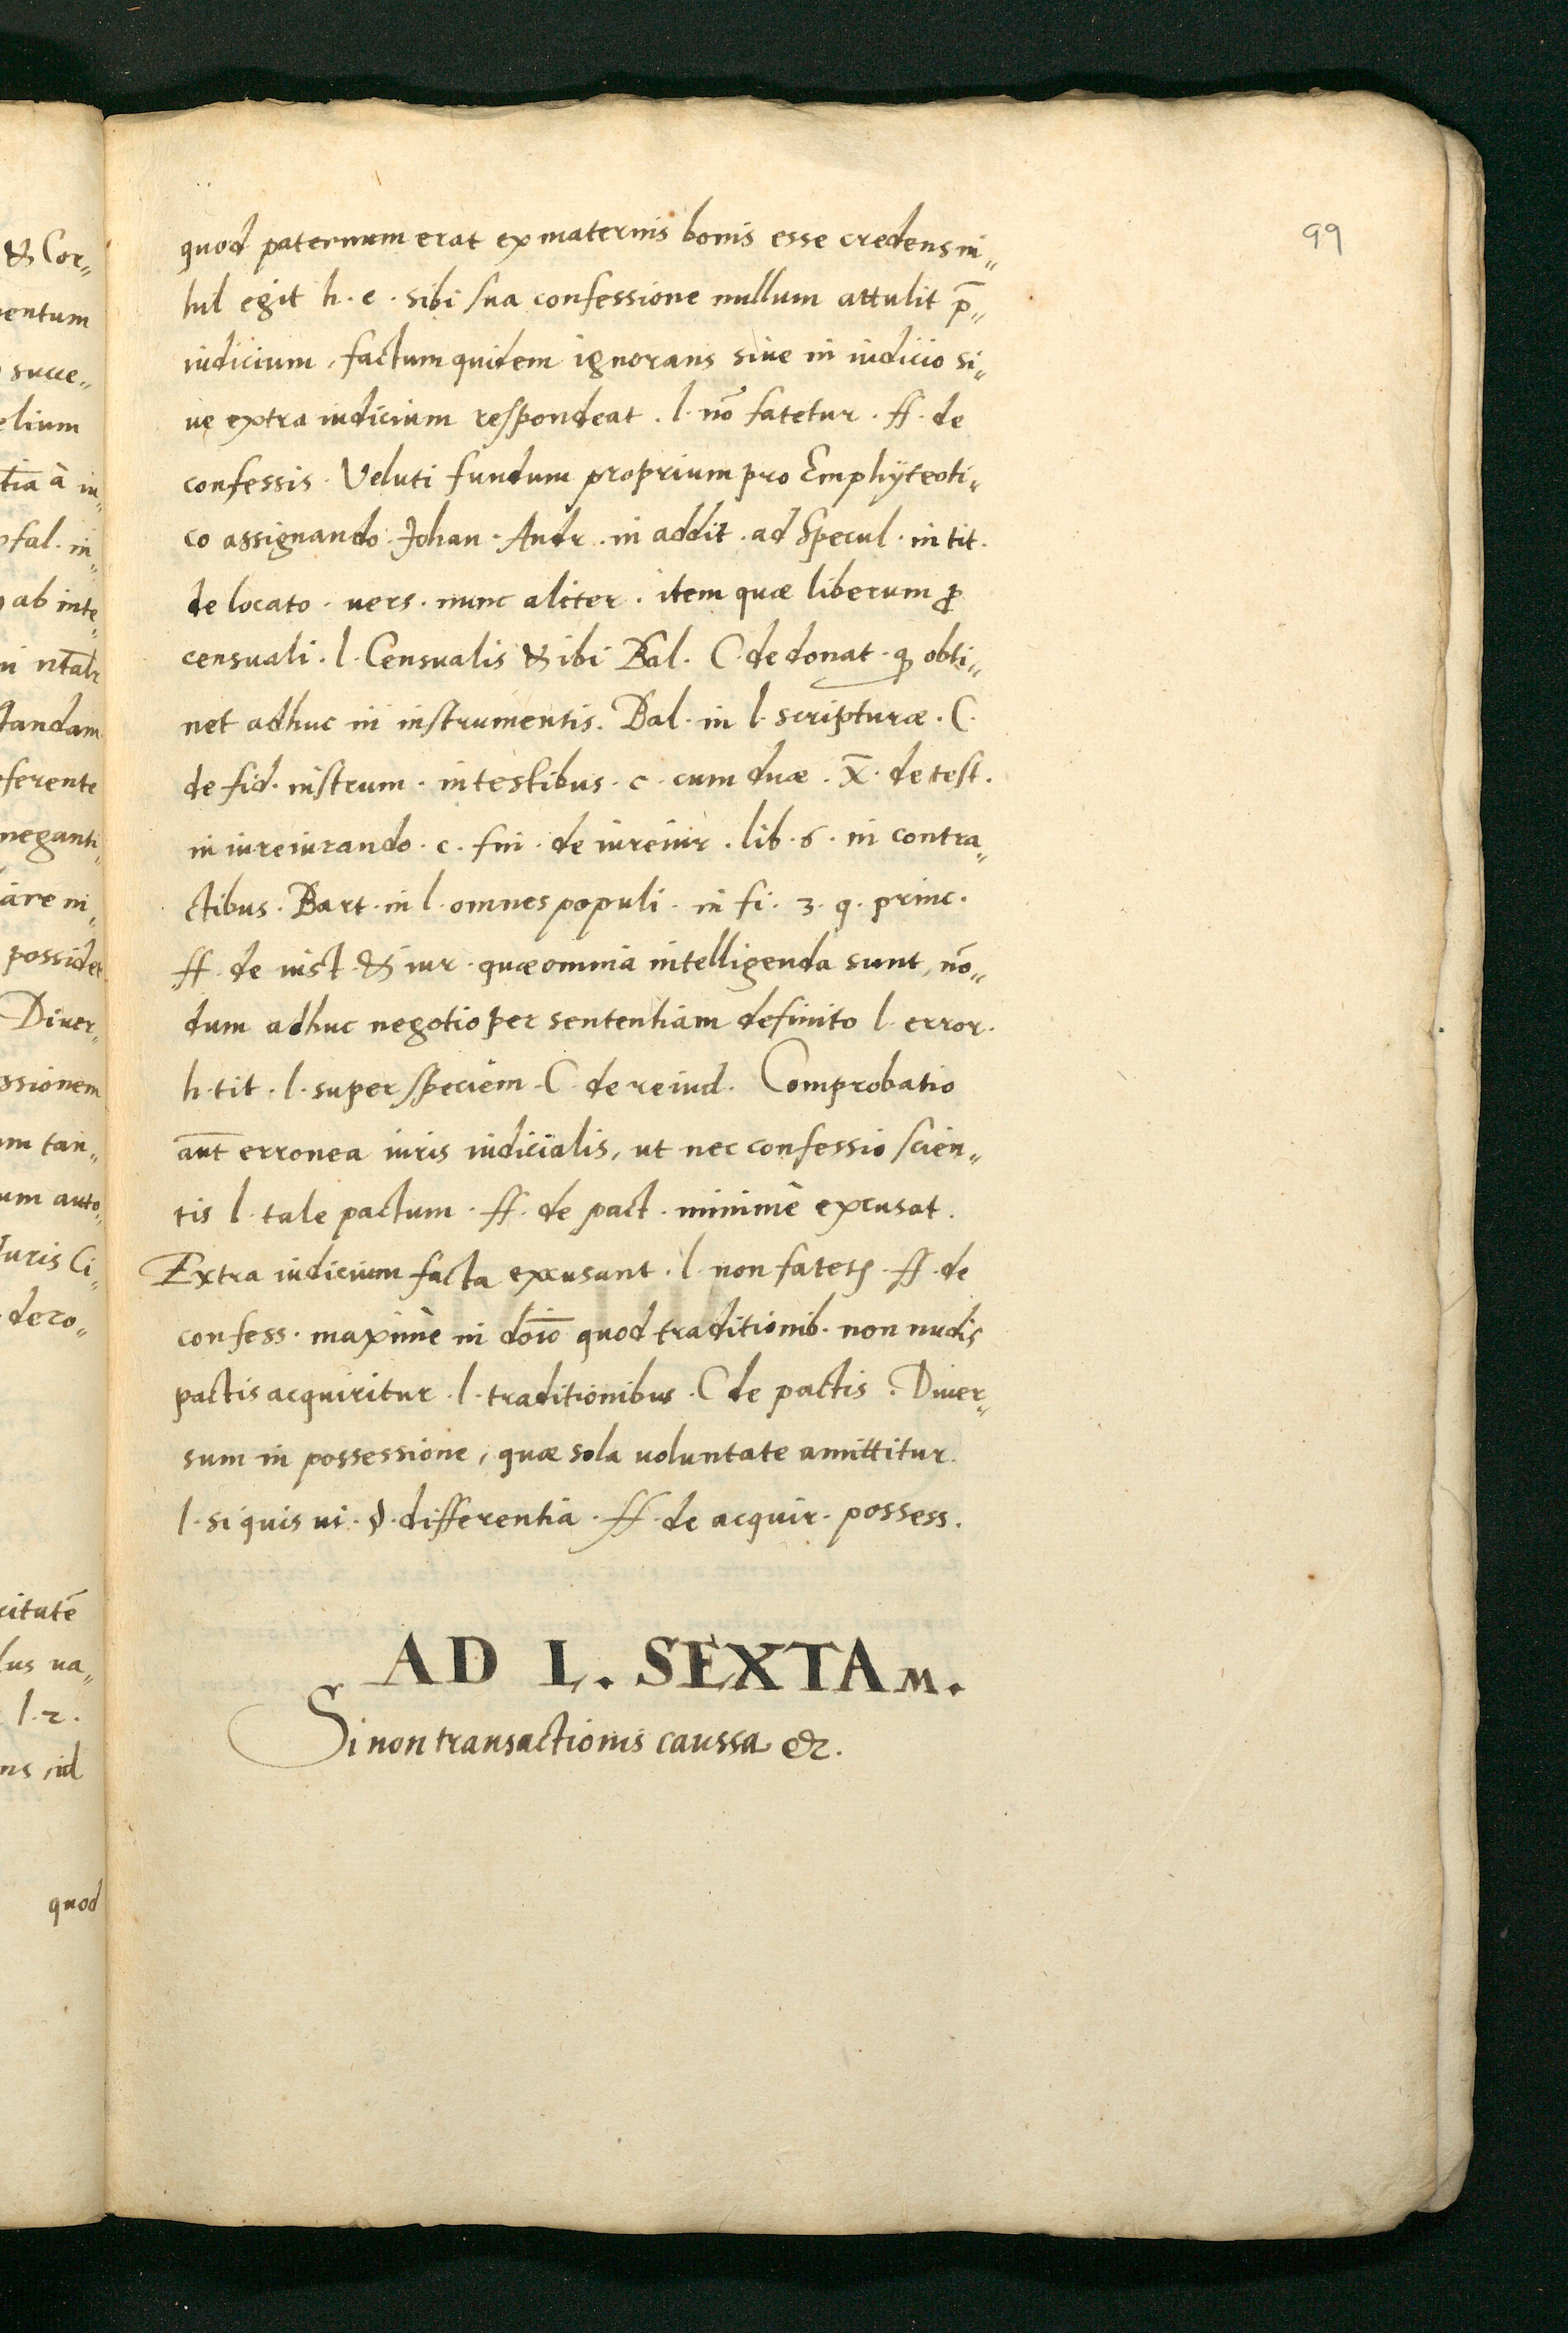 99
quod paternum erat ex maternis bonis esse credens ni„
hil egit h. e. sibi sua confessione nullum attulit p̄„
iudicium, factum quidem ignorans siue in iudicio si„
ue extra iudicium respondeat. l. nō fatetur. ff. de
confessis. Veluti fundum proprium pro Emphÿteoti„
co assignando. Johan. Andr. in addit. ad Specul. in tit.
de locato. uers. nunc aliter. item quæ liberum ꝓ
censuali. l. Censualis & ibi Bal. C. de donat. ꝙ obti„
net adhuc in instrumentis. Bal. in l. scripturæ. C.
de fid. instrum. in testibus. c. cum duæ. X̄. de test.
in iureiurando. c. fin. de iureiur. lib. 6. in contra„
ctibus. Bart. in l. omnes populi. in fi. 3. q. princ.
ff. de iust. & iur. quæ omnia intelligenda sunt, nō„
dum adhuc negotio per sententiam definito l. error.
h. tit. l. super speciem. C. de re iud. Comprobatio
aut̄ erronea iuris iudicialis, ut nec confessio scien„
tis l. tale pactum. ff. de pact. minimè excusat.
Extra iudicium facta excusant. l. non fatetꝭ. ff. de
confess. maximè in do͞io quod traditionib. non nudis
pactis acquiritur. l. traditionibus. C de pactis. Diuer„
sum in possessione, quæ sola uoluntate amittitur.
l. si quis ui. §. differentia. ff. de acquir. possess.
AD L. SEXTAM.
Si non transactionis caussa &c.
& Cor„
entum
succe„
elium
tia à in„
fal. in„
ab inte„
tandam
ferente
neganti„
are ni„
possidet
Diuer„
ssionem
um tan„
um auto„
Juris Ci„
dero„
citatē
dus ua„
l. 2.
ns id
quod